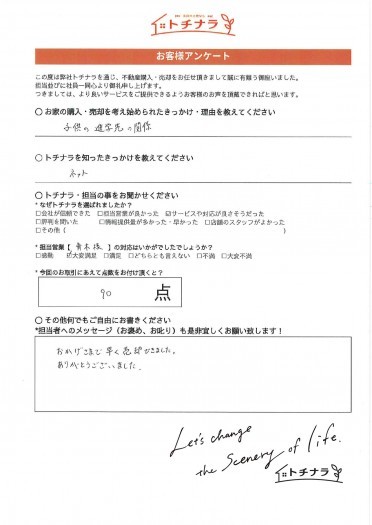 トチナラ
お客様アンケート
この度は弊社トチナラを通じ、不動産購入・売却をお任せ頂きまして誠に有難う御座いました。
担当並びに社員一同心より御礼申し上げます。
つきましては、より良いサービスをご提供できるようお客様のお声を頂戴できればと思います。
○ お家の購入・売却を考え始められたきっかけ・理由を教えてください
子供の進学先の関係
○ トチナラを知ったきっかけを教えてください
ネット
○ トチナラ・担当の事をお聞かせください
* なぜトチナラを選ばれましたか?
□会社が信頼できた □担当営業が良かった ☑サービスや対応が良さそうだった
□評判を聞いた □情報提供量が多かった・早かった □店舗のスタッフがよかった
□その他 (
* 担当営業【 青木様 】の対応はいかがでしたでしょうか?
□感動 ☑大変満足 □満足 □どちらとも言えない □不満 □大変不満
* 今回のお取引にあえて点数をお付け頂くと?
90 点
○ その他何でもご自由にお書きください
*担当者へのメッセージ（お褒め、お叱り）も是非宜しくお願い致します！
おかげさまで早く売却できました。
ありがとうございました。
Let's change
the Scenery of life.
トチナラ